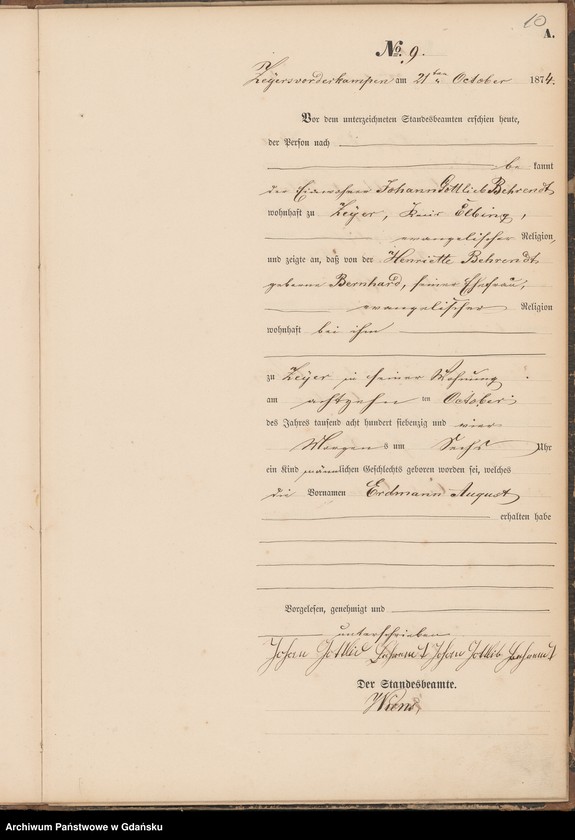 10
A.
No. 9.
Zeyersvorderkampen am 21ten October 1874.
Vor dem unterzeichneten Standesbeamten erschien heute,
der Person nach
be kannt
der Einwohner Johann Gottlieb Behrendt
wohnhaft zu Zeyer, Kreis Elbing,
evangelischer Religion,
und zeigte an, daß von der Henriette Behrendt
geborene Bernhard, seiner Ehefrau,
evangelischer Religion
wohnhaft bei ihm
zu Zeyer in seiner Wohnung
am achtzehn ten October
des Jahres tausend acht hundert siebenzig und vier
Morgen s um Sechs Uhr
ein Kind männlichen Geschlechts geboren worden sei, welches
die Vornamen Erdmann August
erhalten habe
Vorgelesen, genehmigt und
unterschrieben
Johan Gottlib Johan Gottlib
Der Standesbeamte.
Archiwum Państwowe w Gdańsku